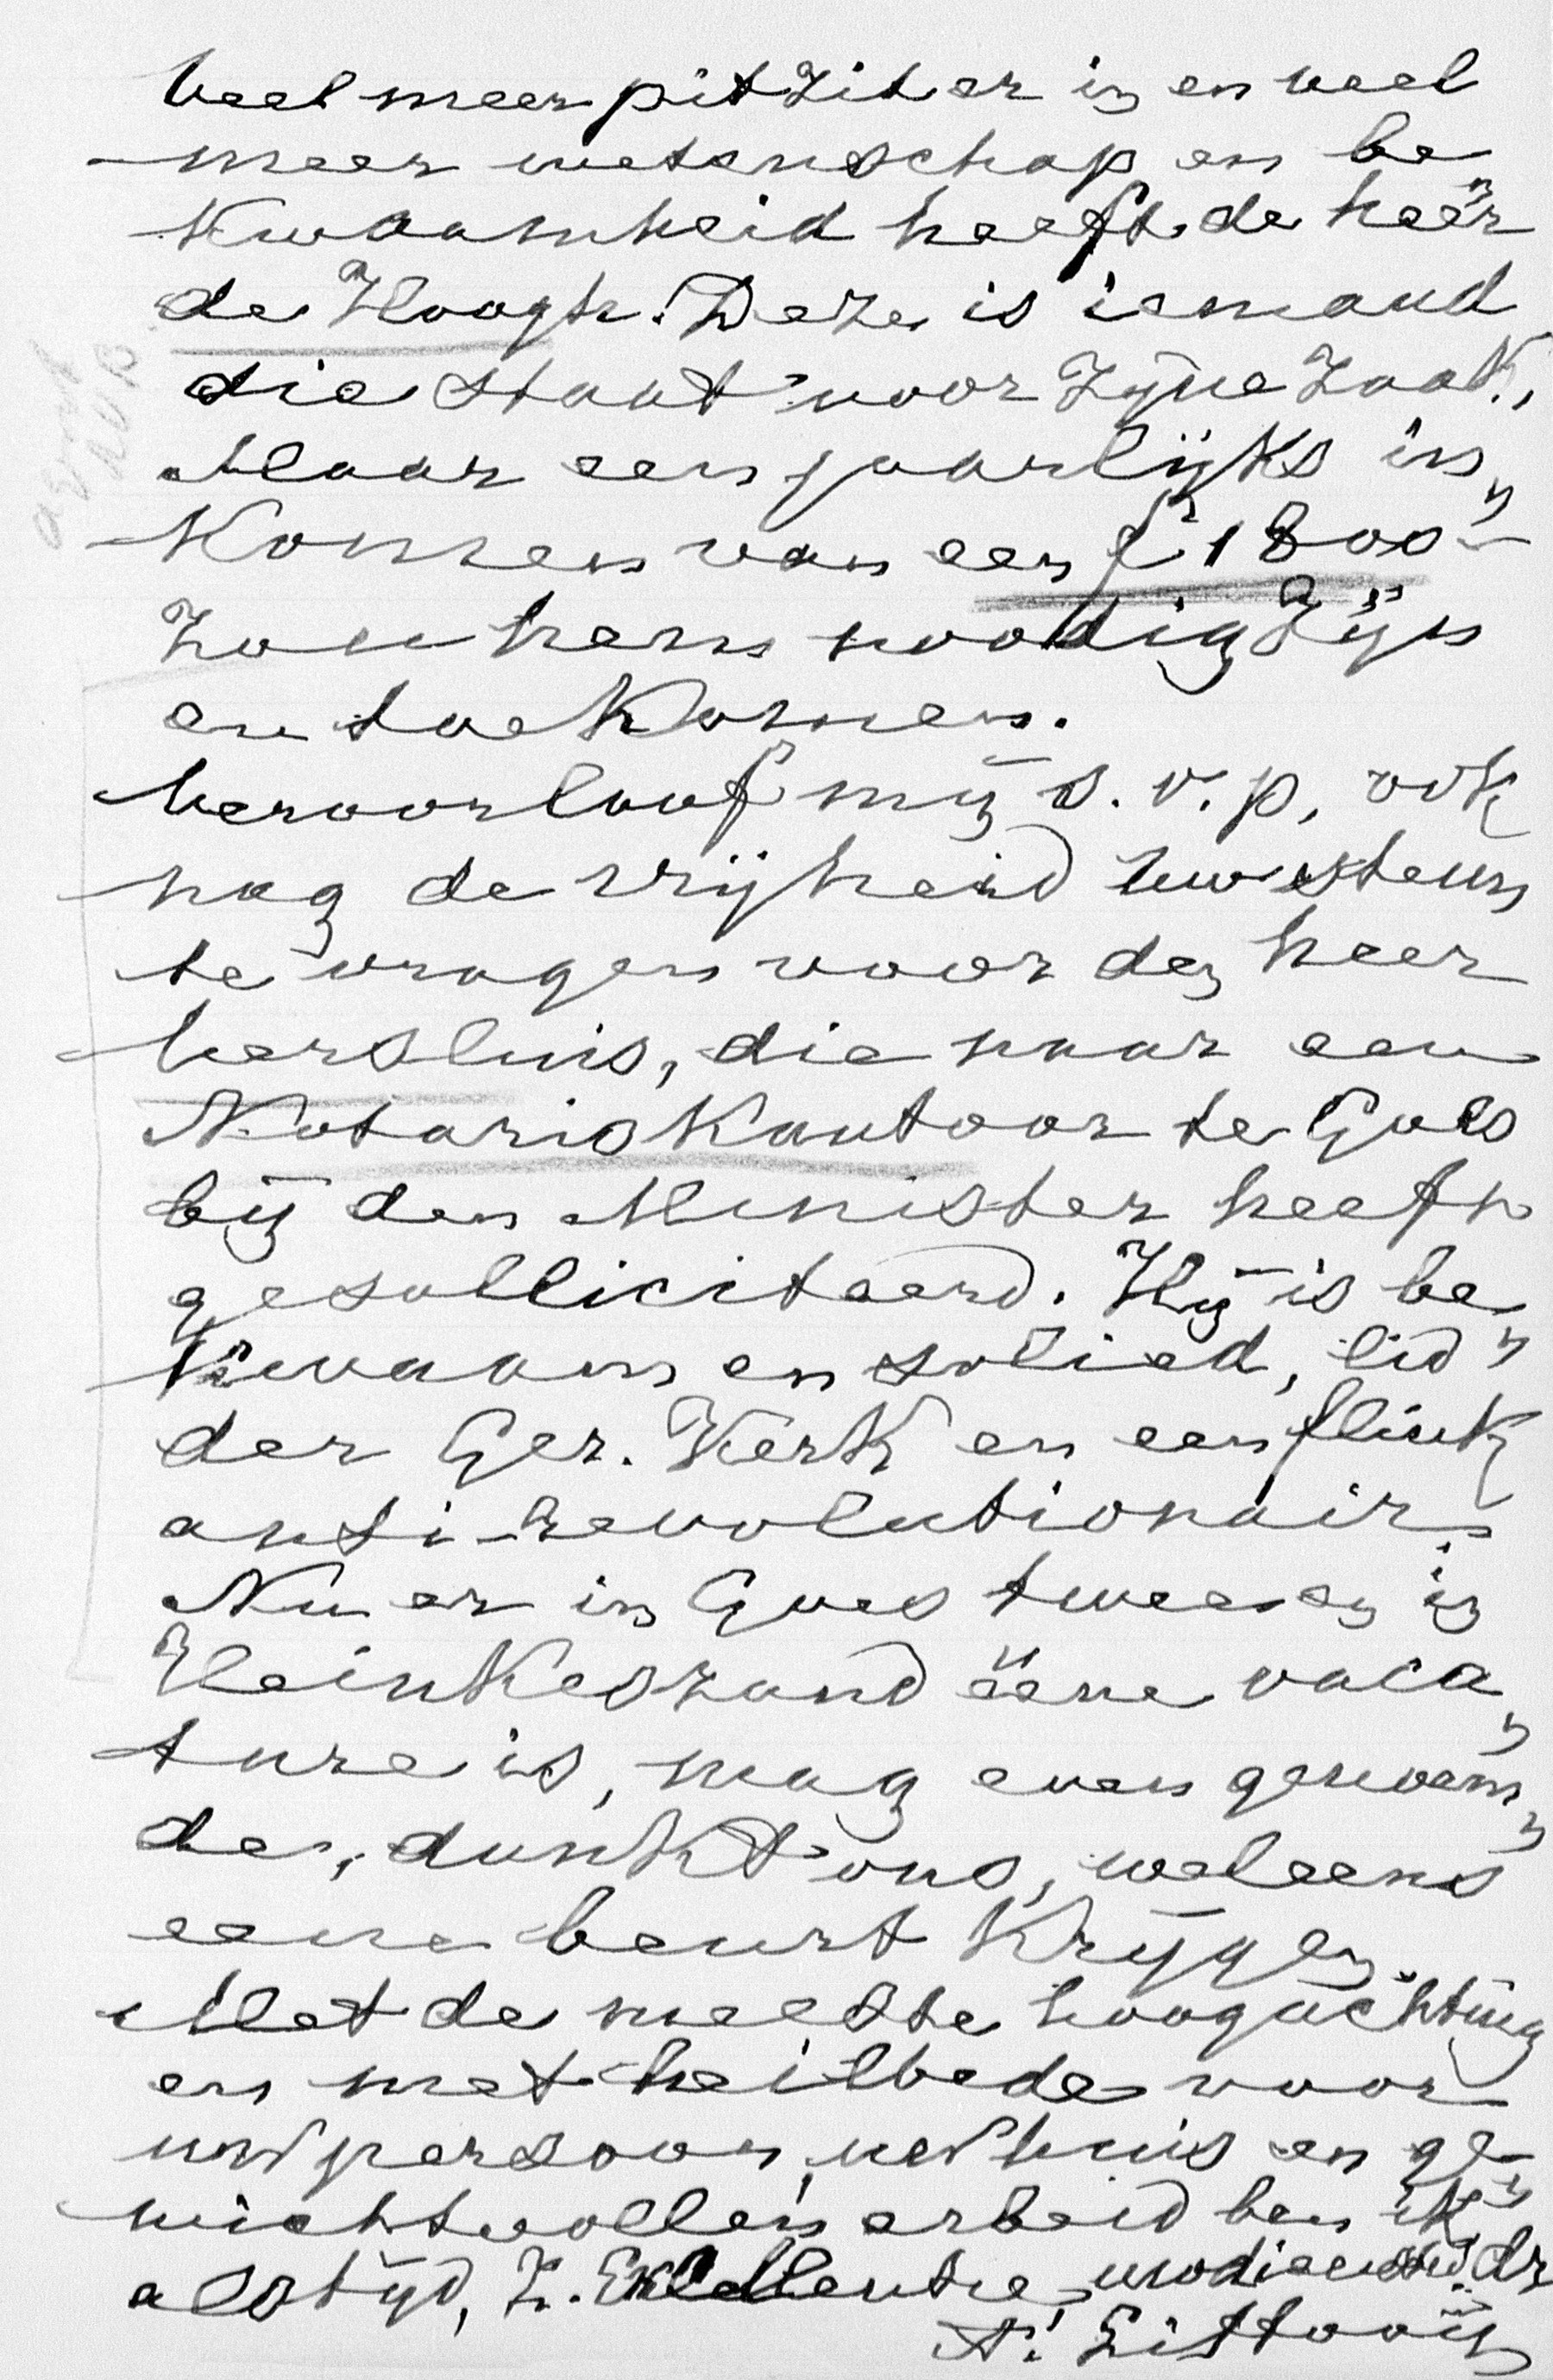 Veel meer pit zit er in en veel
meer wetenschap en be„
kwaamheid heeft de heer
de Hoogh. Deze is iemand
die staat voor zijne zaak,
Maar een jaarlijks in„
komen van een f 1800 –
zou hem noodig zijn
en toekomen.
Veroorloof mij s.v.p. ook
nog de vrijheid uw steun
te vragen voor den heer
Versluis, die naar een
Notariskantoor te Goes
bij den Minister heeft
gesolliciteerd. Hij is be„
kwaam en solied, lid
der Ger. Kerk en een flink
anti-revolutionair.
Nu er in Goes twee en in
Heinkeszand ééne vaca„
ture is, mag evengenoem„
de, dunkt ons, wel eens
eene beurt krijgen.
Met de meeste hoogachting
en met heilbede voor
uw persoon, uw huis en ge„
wichtvollen arbeid ben ik
altijd, Z. Excellentie, uw dienstw. dr
A. Littooij